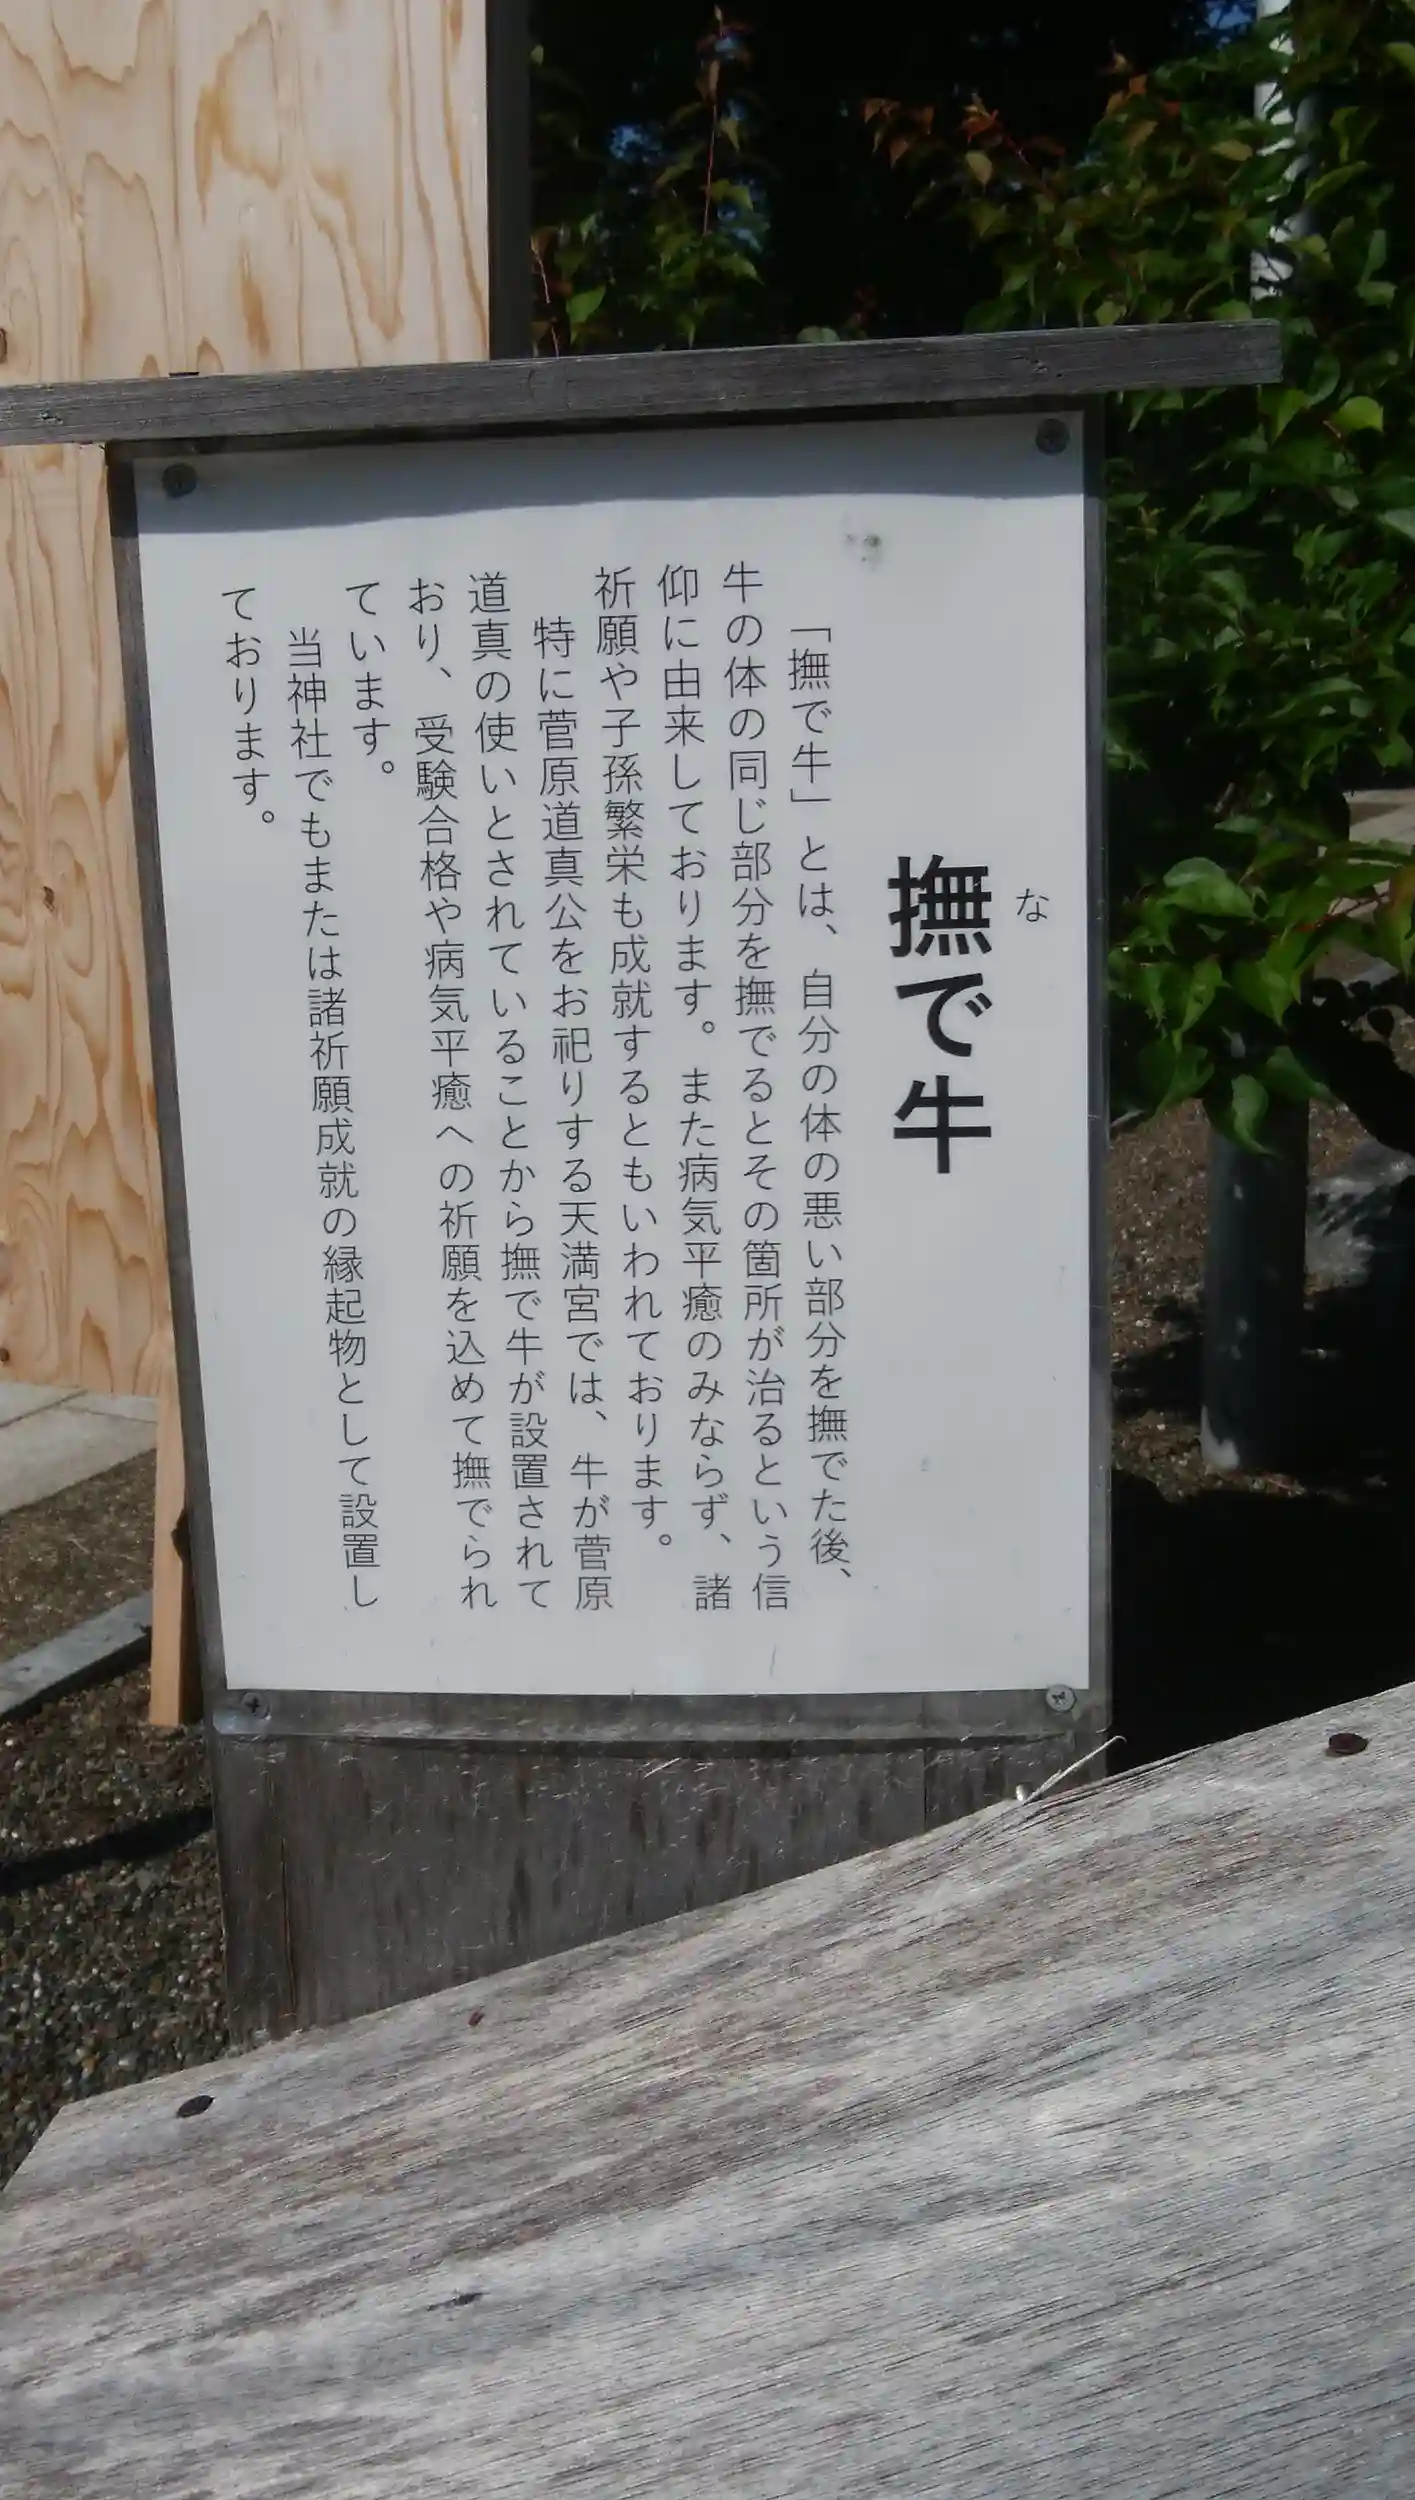 撫で牛
な
「撫で牛」とは、自分の体の悪い部分を撫でた後、
牛の体の同じ部分を撫でるとその箇所が治るという信
仰に由来しております。また病気平癒のみならず、諸
祈願や子孫繁栄も成就するともいわれております。
特に菅原道真公をお祀りする天満宮では、牛が菅原
道真の使いとされていることから撫で牛が設置されて
おり、受験合格や病気平癒への祈願を込めて撫でられ
ています。
当神社でもまたは諸祈願成就の縁起物として設置し
ております。